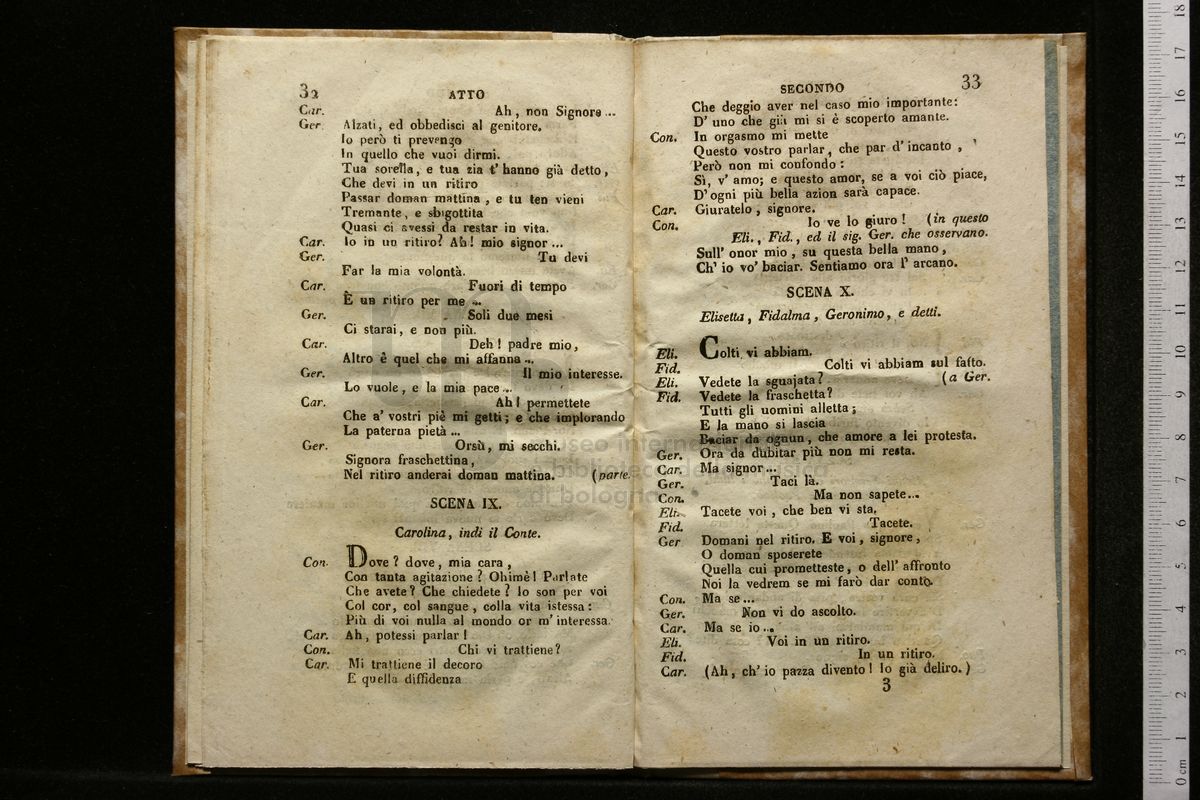 32
ATTO
Car. Ah, non Signore ...
Ger. Alzati, ed obbedisci al genitore.
Io però ti prevengo
In quello che vuoi dirmi.
Tua sorella, e tua zia t' hanno già detto,
Che devi in un ritiro
Passar doman mattina, e tu ten vieni
Tremante, e sbigottita
Quasi ci avessi da restar in vita.
Car. Io in un ritiro? Ah! mio signor ...
Ger. Tu devi
Far la mia volontà.
Car. Fuori di tempo
È un ritiro per me ...
Ger. Soli due mesi
Ci starai, e non più.
Car. Deh! padre mio,
Altro è quel che mi affanna ...
Ger. Il mio interesse.
Lo vuole, e la mia pace ...
Car. Ah! permettete
Che a' vostri piè mi getti; e che implorando
La paterna pietà ...
Ger. Orsù, mi secchi.
Signora fraschettina,
Nel ritiro anderai doman mattina. (parte.
SCENA IX.
Carolina, indi il Conte.
Con. Dove? dove, mia cara,
Con tanta agitazione? Ohimè! Parlate
Che avete? Che chiedete? Io son per voi
Col cor, col sangue, colla vita istessa:
Più di voi nulla al mondo or m' interessa.
Car. Ah, potessi parlar!
Con. Chi vi trattiene?
Car. Mi trattiene il decoro
E quella diffidenza
SECONDO
33
Che deggio aver nel caso mio importante:
D' uno che già mi si è scoperto amante.
Con. In orgasmo mi mette
Questo vostro parlar, che par d' incanto,
Però non mi confondo:
Sì, v' amo; e questo amor, se a voi ciò piace,
D' ogni più bella azion sarà capace.
Car. Giuratelo, signore.
Con. Io ve lo giuro! (in questo
Eli., Fid., ed il sig. Ger. che osservano.
Sull' onor mio, su questa bella mano,
Ch' io vo' baciar. Sentiamo ora l' arcano.
SCENA X.
Elisetta, Fidalma, Geronimo, e detti.
Eli. Colti vi abbiam.
Fid. Colti vi abbiam sul fatto.
Eli. Vedete la sguajata? (a Ger.
Fid. Vedete la fraschetta?
Tutti gli uomini alletta;
E la mano si lascia
Baciar da ognun, che amore a lei protesta.
Ger. Ora da dubitar più non mi resta.
Car. Ma signor ...
Ger. Taci là.
Con. Ma non sapete ...
Eli. Tacete voi, che ben vi sta.
Fid. Tacete.
Ger Domani nel ritiro. E voi, signore,
O doman sposerete
Quella cui prometteste, o dell' affronto
Noi la vedrem se mi farò dar conto.
Con. Ma se ...
Ger. Non vi do ascolto.
Car. Ma se io ...
Eli. Voi in un ritiro.
Fid. In un ritiro.
Car. (Ah, ch' io pazza divento! Io già deliro.)
3
museo interna
bibliote della musica
di bologna
0 cm 1 2 3 4 5 6 7 8 9 10 11 12 13 14 15 16 17 18